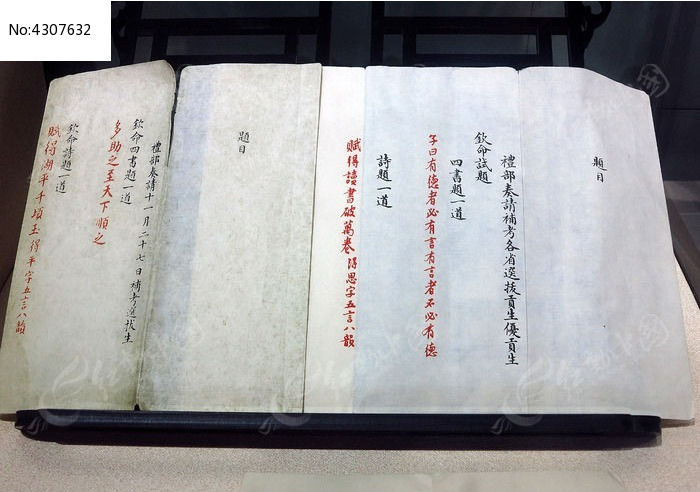 No:4307632
題目
禮部奏請補考各省選拔貢生優貢生
欽命試題
四書題一道
子曰有德者必有言有言者不必有德
詩題一道
賦得讀書破萬卷 得思字五言八韻
題目
禮部奏請十一月二十七日補考選拔生
欽命四書題一道
多助之至天下順之
欽命詩題一道
賦得湖平千頃玉得平字五言八韻